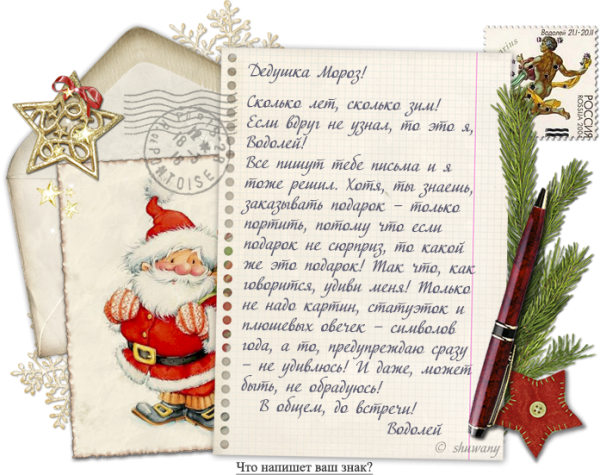 Водолей 21.1-20.11
РОССИЯ
ROSSIA 2004
PONTOISE
Дедушка Мороз!
Сколько лет, сколько зим!
Если вдруг не узнал, то это я,
Водолей!
Все пишут тебе письма и я
тоже решил. Хотя, ты знаешь,
заказывать подарок – только
портить, потому что если
подарок не сюрприз, то какой
же это подарок! Так что, как
говорится, удиви меня! Только
не надо картин, статуэток и
плюшевых овечек – символов
года, а то, предупреждаю сразу
– не удивлюсь! И даже, может
быть, не обрадуюсь!
В общем, до встречи!
Водолей
© shuwany
Что напишет ваш знак?